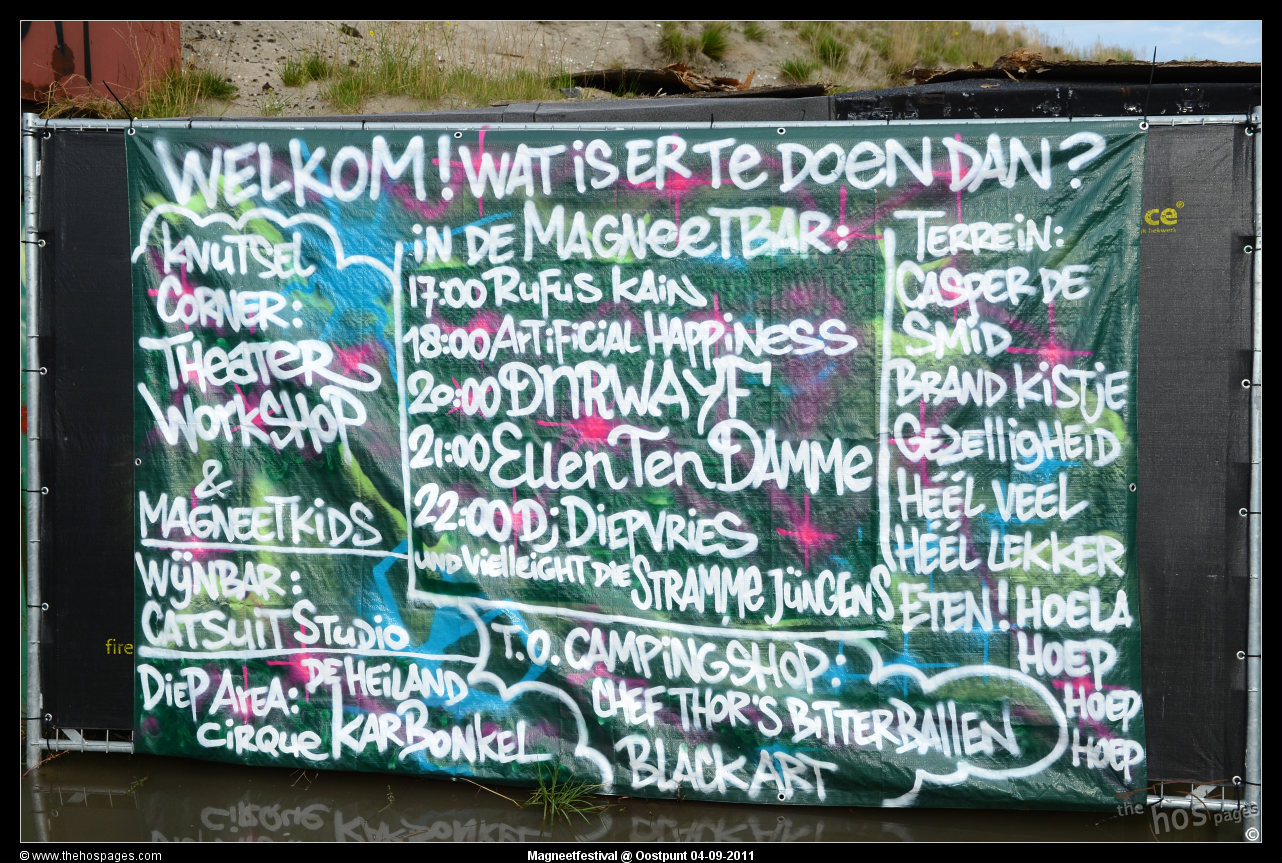 WELKOM! WAT iS ER TE DOEN DAN?
KNUTSEL
CORNER:
THEATER
WORKSHOP
&
MAGNEETKIDS
WIJNBAR:
CATSUIT STUDIO
DIEP AREA: DE HEILAND
CIRQUE KARBONKEL
iN DE MAGNEETBAR:
17:00 RUFUS KAIN
18:00 ARTIFICIAL HAPPINESS
20:00 DNRWAYF
21:00 Ellen Ten DAMME
22:00 Dj DIEPVRIES
UND VIELLEIGHT DIE STRAMME JÜNGENS
T.O. CAMPINGSHOP:
CHEF THOR'S BITTERBALLEN
BLACK ART
TERREIN:
CASPER DE
SMID
BRAND KISTJE
GEZELLIGHEID
HÉÉL VEEL
HÉÉL LEKKER
ETEN! HOELA
HOEP
HOEP
HOEP
ce®
fire
the hos pages
©
© www.thehospages.com
Magneetfestival @ Oostpunt 04-09-2011